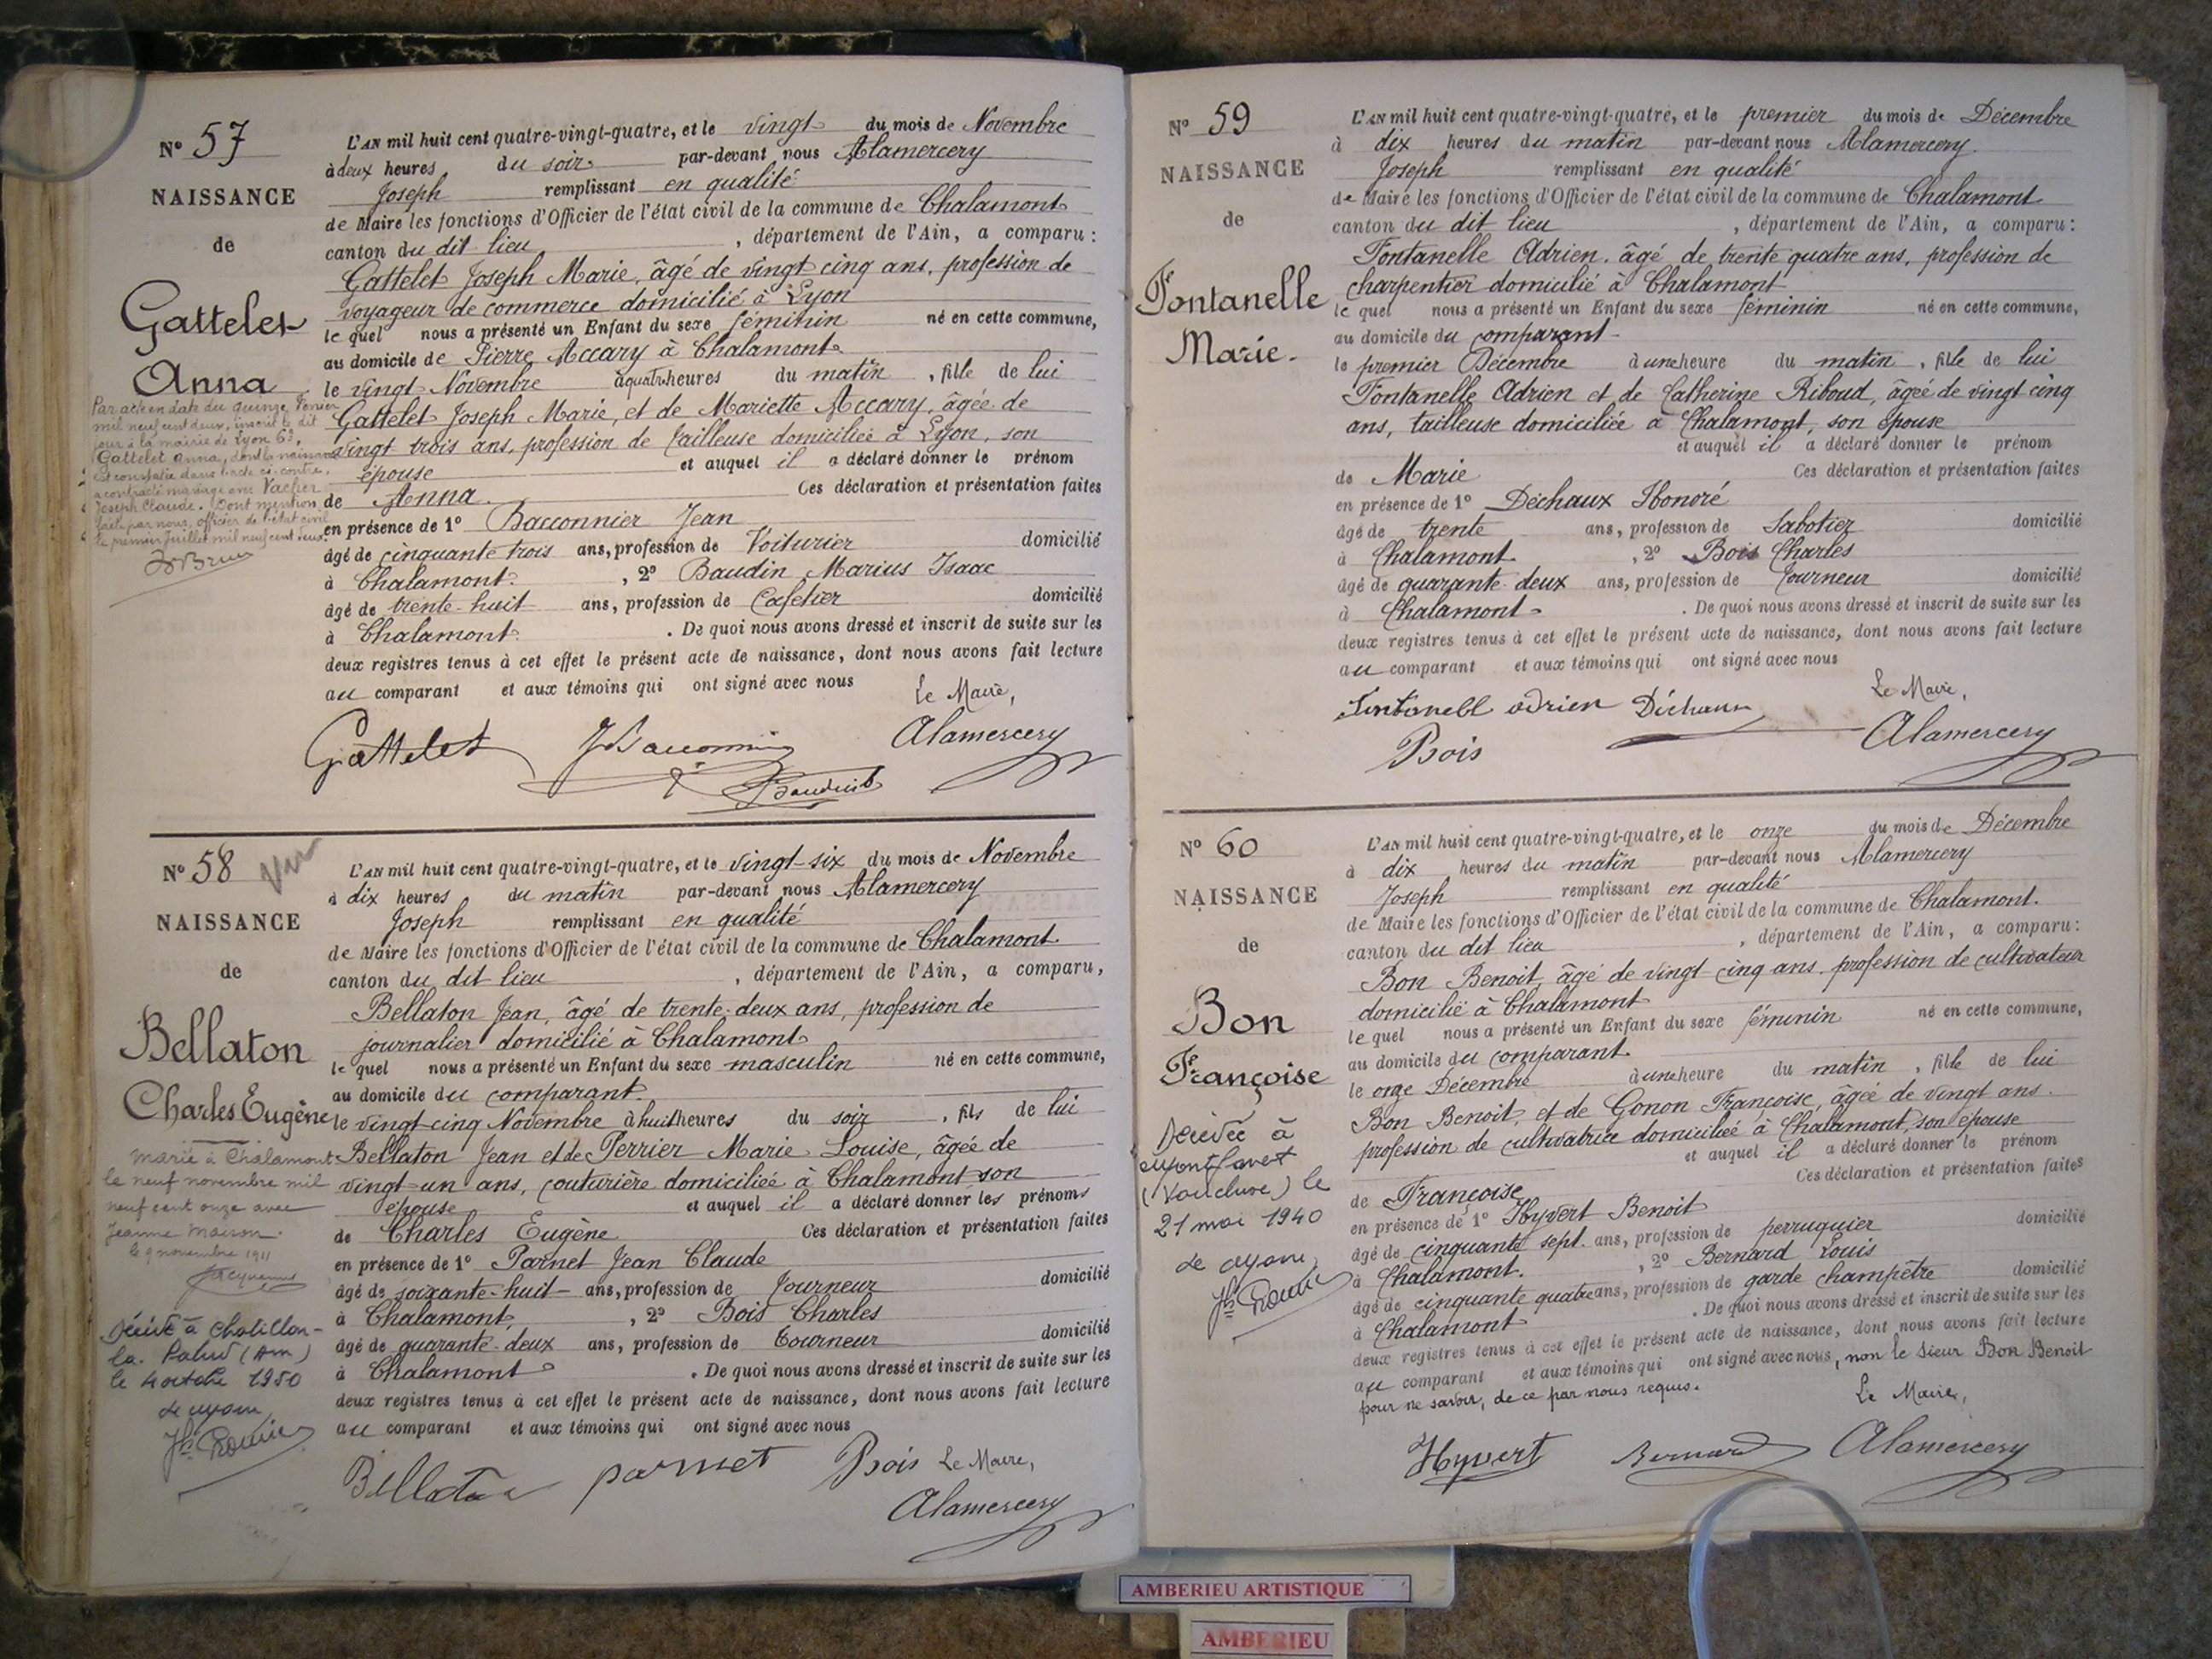 N° 57
NAISSANCE
de
Gattelet
Anna
Par acte en date du quinze Février
mil neuf cent deux, inscrit le dit
jour à la mairie de Lyon 6e,
Gattelet Anna, dont la naissance
est constatée dans l'acte ci-contre,
a contracté mariage avec Vacher
Joseph Claude. Dont mention
faite par nous, officier de l'état civil
le premier Juillet mil neuf cent deux.
L'AN mil huit cent quatre-vingt-quatre, et le vingt du mois de Novembre
à deux heures du soir par-devant nous Alamercery
Joseph remplissant en qualité
de Maire les fonctions d'Officier de l'état civil de la commune de Chalamont
canton du dit lieu, département de l'Ain, a comparu :
Gattelet Joseph Marie, âgé de vingt cinq ans, profession de
voyageur de commerce domicilié à Lyon
lequel nous a présenté un Enfant du sexe féminin né en cette commune,
au domicile de Pierre Accary à Chalamont
le vingt Novembre à quatre heures du matin, fille de lui
Gattelet Joseph Marie, et de Mariette Accary, âgée de
vingt trois ans, profession de tailleuse domiciliée à Lyon, son
épouse et auquel il a déclaré donner le prénom
de Anna. Ces déclaration et présentation faites
en présence de 1° Bacconnier Jean
âgé de cinquante trois ans, profession de Voiturier domicilié
à Chalamont, 2° Baudin Marius Isaac
âgé de trente-huit ans, profession de Cafetier domicilié
à Chalamont. De quoi nous avons dressé et inscrit de suite sur les
deux registres tenus à cet effet le présent acte de naissance, dont nous avons fait lecture
au comparant et aux témoins qui ont signé avec nous
Le Maire,
Gattelet JBacconnier Alamercery
Baudin
N° 58
NAISSANCE
de
Bellaton
Charles Eugène
Marié à Chalamont
le neuf novembre mil
neuf cent onze avec
Jeanne
le 9 novembre 1911
Décédé à Chatillon-
la-Palud (Ain)
le 4 octobre 1950
L'AN mil huit cent quatre-vingt-quatre, et le vingt-six du mois de Novembre
à dix heures du matin par-devant nous Alamercery
Joseph remplissant en qualité
de Maire les fonctions d'Officier de l'état civil de la commune de Chalamont
canton du dit lieu, département de l'Ain, a comparu,
Bellaton Jean, âgé de trente-deux ans, profession de
journalier domicilié à Chalamont
lequel nous a présenté un Enfant du sexe masculin né en cette commune,
au domicile du comparant.
le vingt-cinq Novembre à huit heures du soir, fils de lui
Bellaton Jean et de Perrier Marie Louise, âgée de
vingt-un ans, couturière domiciliée à Chalamont son
épouse et auquel il a déclaré donner les prénoms
de Charles Eugène Ces déclaration et présentation faites
en présence de 1° Parnet Jean Claude
âgé de soixante-huit ans, profession de Tourneur domicilié
à Chalamont, 2° Bois Charles
âgé de quarante-deux ans, profession de tourneur domicilié
à Chalamont. De quoi nous avons dressé et inscrit de suite sur les
deux registres tenus à cet effet le présent acte de naissance, dont nous avons fait lecture
au comparant et aux témoins qui ont signé avec nous
Bellaton parnet Bois Le Maire,
Alamercery
N° 59
NAISSANCE
de
Fontanelle
Marie.
L'AN mil huit cent quatre-vingt-quatre, et le premier du mois de Décembre
à dix heures du matin par-devant nous Alamercery
Joseph remplissant en qualité
de Maire les fonctions d'Officier de l'état civil de la commune de Chalamont
canton du dit lieu, département de l'Ain, a comparu :
Fontanelle Adrien, âgé de trente quatre ans, profession de
charpentier domicilié à Chalamont
lequel nous a présenté un Enfant du sexe féminin né en cette commune,
au domicile du comparant
le premier Décembre à une heure du matin, fille de lui
Fontanelle Adrien et de Catherine Riboud, âgée de vingt cinq
ans, tailleuse domiciliée à Chalamont, son épouse
et auquel il a déclaré donner le prénom
de Marie Ces déclaration et présentation faites
en présence de 1° Déchaux Honoré
âgé de trente ans, profession de Sabotier domicilié
à Chalamont, 2° Bois Charles
âgé de quarante-deux ans, profession de Tourneur domicilié
à Chalamont. De quoi nous avons dressé et inscrit de suite sur les
deux registres tenus à cet effet le présent acte de naissance, dont nous avons fait lecture
au comparant et aux témoins qui ont signé avec nous
Le Maire,
Fontanell adrien Déchaux
Bois Alamercery
N° 60
NAISSANCE
de
Bon
Françoise
Décédée à
Montfavet
(Vaucluse) le
21 mai 1940
L'AN mil huit cent quatre-vingt-quatre, et le onze du mois de Décembre
à dix heures du matin par-devant nous Alamercery
Joseph remplissant en qualité
de Maire les fonctions d'Officier de l'état civil de la commune de Chalamont.
canton du dit lieu, département de l'Ain, a comparu :
Bon Benoit, âgé de vingt-cinq ans, profession de cultivateur
domicilié à Chalamont
lequel nous a présenté un Enfant du sexe féminin né en cette commune,
au domicile du comparant
le onze Décembre à une heure du matin, fille de lui
Bon Benoit, et de Gonon Françoise, âgée de vingt ans.
profession de cultivatrice domiciliée à Chalamont, son épouse
et auquel il a déclaré donner le prénom
de Françoise Ces déclaration et présentation faites
en présence de 1° Hyvert Benoit
âgé de cinquante sept ans, profession de perruquier domicilié
à Chalamont, 2° Bernard Louis
âgé de cinquante quatre ans, profession de garde champêtre domicilié
à Chalamont. De quoi nous avons dressé et inscrit de suite sur les
deux registres tenus à cet effet le présent acte de naissance, dont nous avons fait lecture
au comparant et aux témoins qui ont signé avec nous, non le sieur Bon Benoit
pour ne savoir, de ce par nous requis.
Le Maire,
Hyvert Bernard Alamercery
AMBERIEU ARTISTIQUE
AMBERIEU